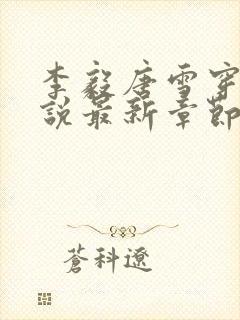 李毅唐雪穿
說最新章節
蒼科遼